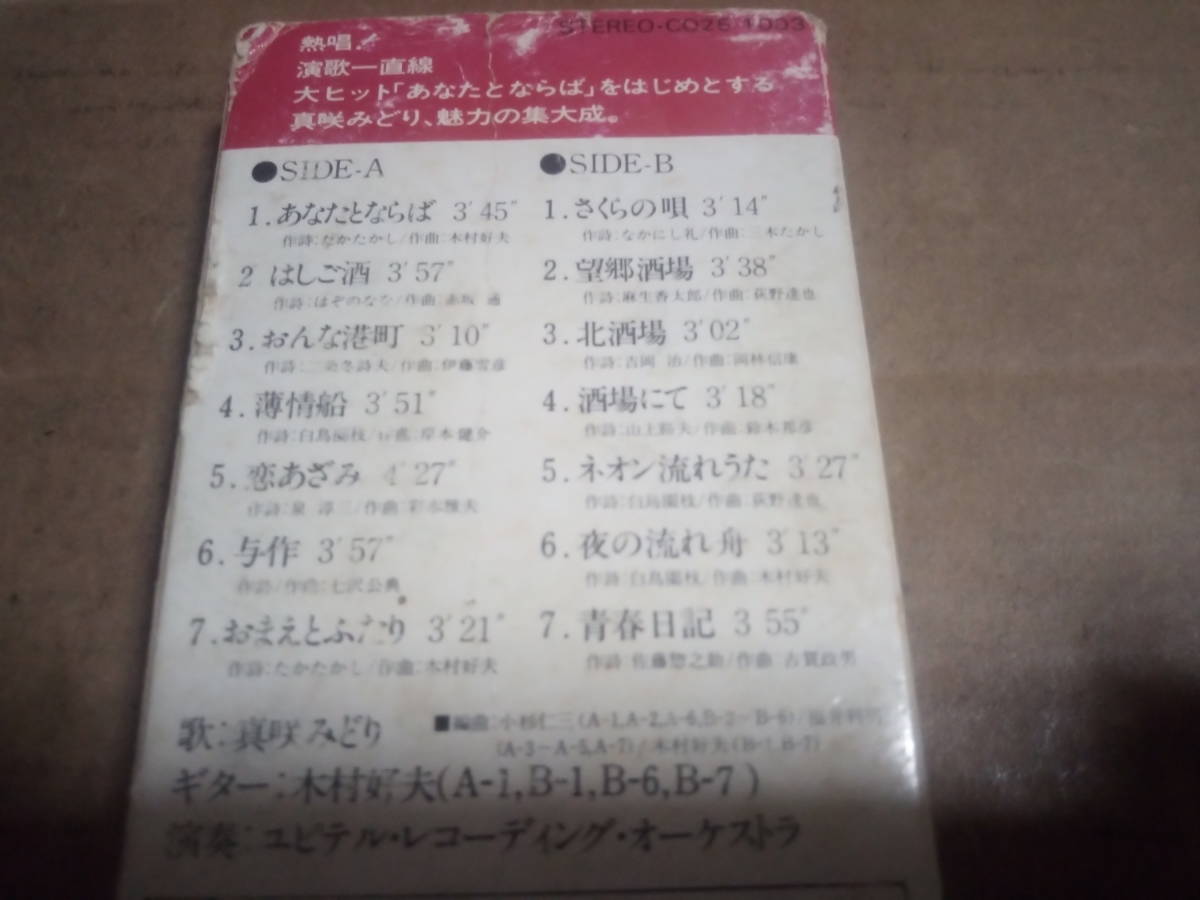 STEREO-CO26-1003
熱唱.
演歌一直線
大ヒット「あなたとならば」をはじめとする
真咲みどり、魅力の集大成。
●SIDE-A
1.あなたとならば 3′45″
作詩:たかたかし/作曲:木村好夫
2 はしご酒 3′57″
作詩:はぞのなな/作曲:赤坂 通
3.おんな港町 3′10″
作詩:二条冬詩夫/作曲:伊藤雪彦
4.薄情船 3′51″
作詩:白鳥園枝/作曲:岸本健介
5.恋あざみ 4′27″
作詩:泉 淳三/作曲:彩木雅夫
6.与作 3′57″
作詩/作曲:七沢公典
7.おまえとふたり 3′21″
作詩:たかたかし/作曲:木村好夫
●SIDE-B
1.さくらの唄 3′14″
作詩:なかにし礼/作曲:三木たかし
2.望郷酒場 3′38″
作詩:麻生香太郎/作曲:荻野達也
3.北酒場 3′02″
作詩:吉岡 治/作曲:岡林信康
4.酒場にて 3′18″
作詩:山上路夫/作曲 鈴木邦彦
5.ネオン流れうた 3′27″
作詩:白鳥園枝/作曲:荻野達也
6.夜の流れ舟 3′13″
作詩:白鳥園枝/作曲:木村好夫
7.青春日記 3 55″
作詩 佐藤惣之助/作曲 古賀政男
歌:真咲みどり
■編曲:小杉仁三(A-1,A-2,A-6,B-2~B-6)/
(A-3~A-5,A-7)/木村好夫(B-1,B-7)
ギター:木村好夫(A-1,B-1,B-6,B-7)
演奏:ユピテル・レコーディング・オーケストラ